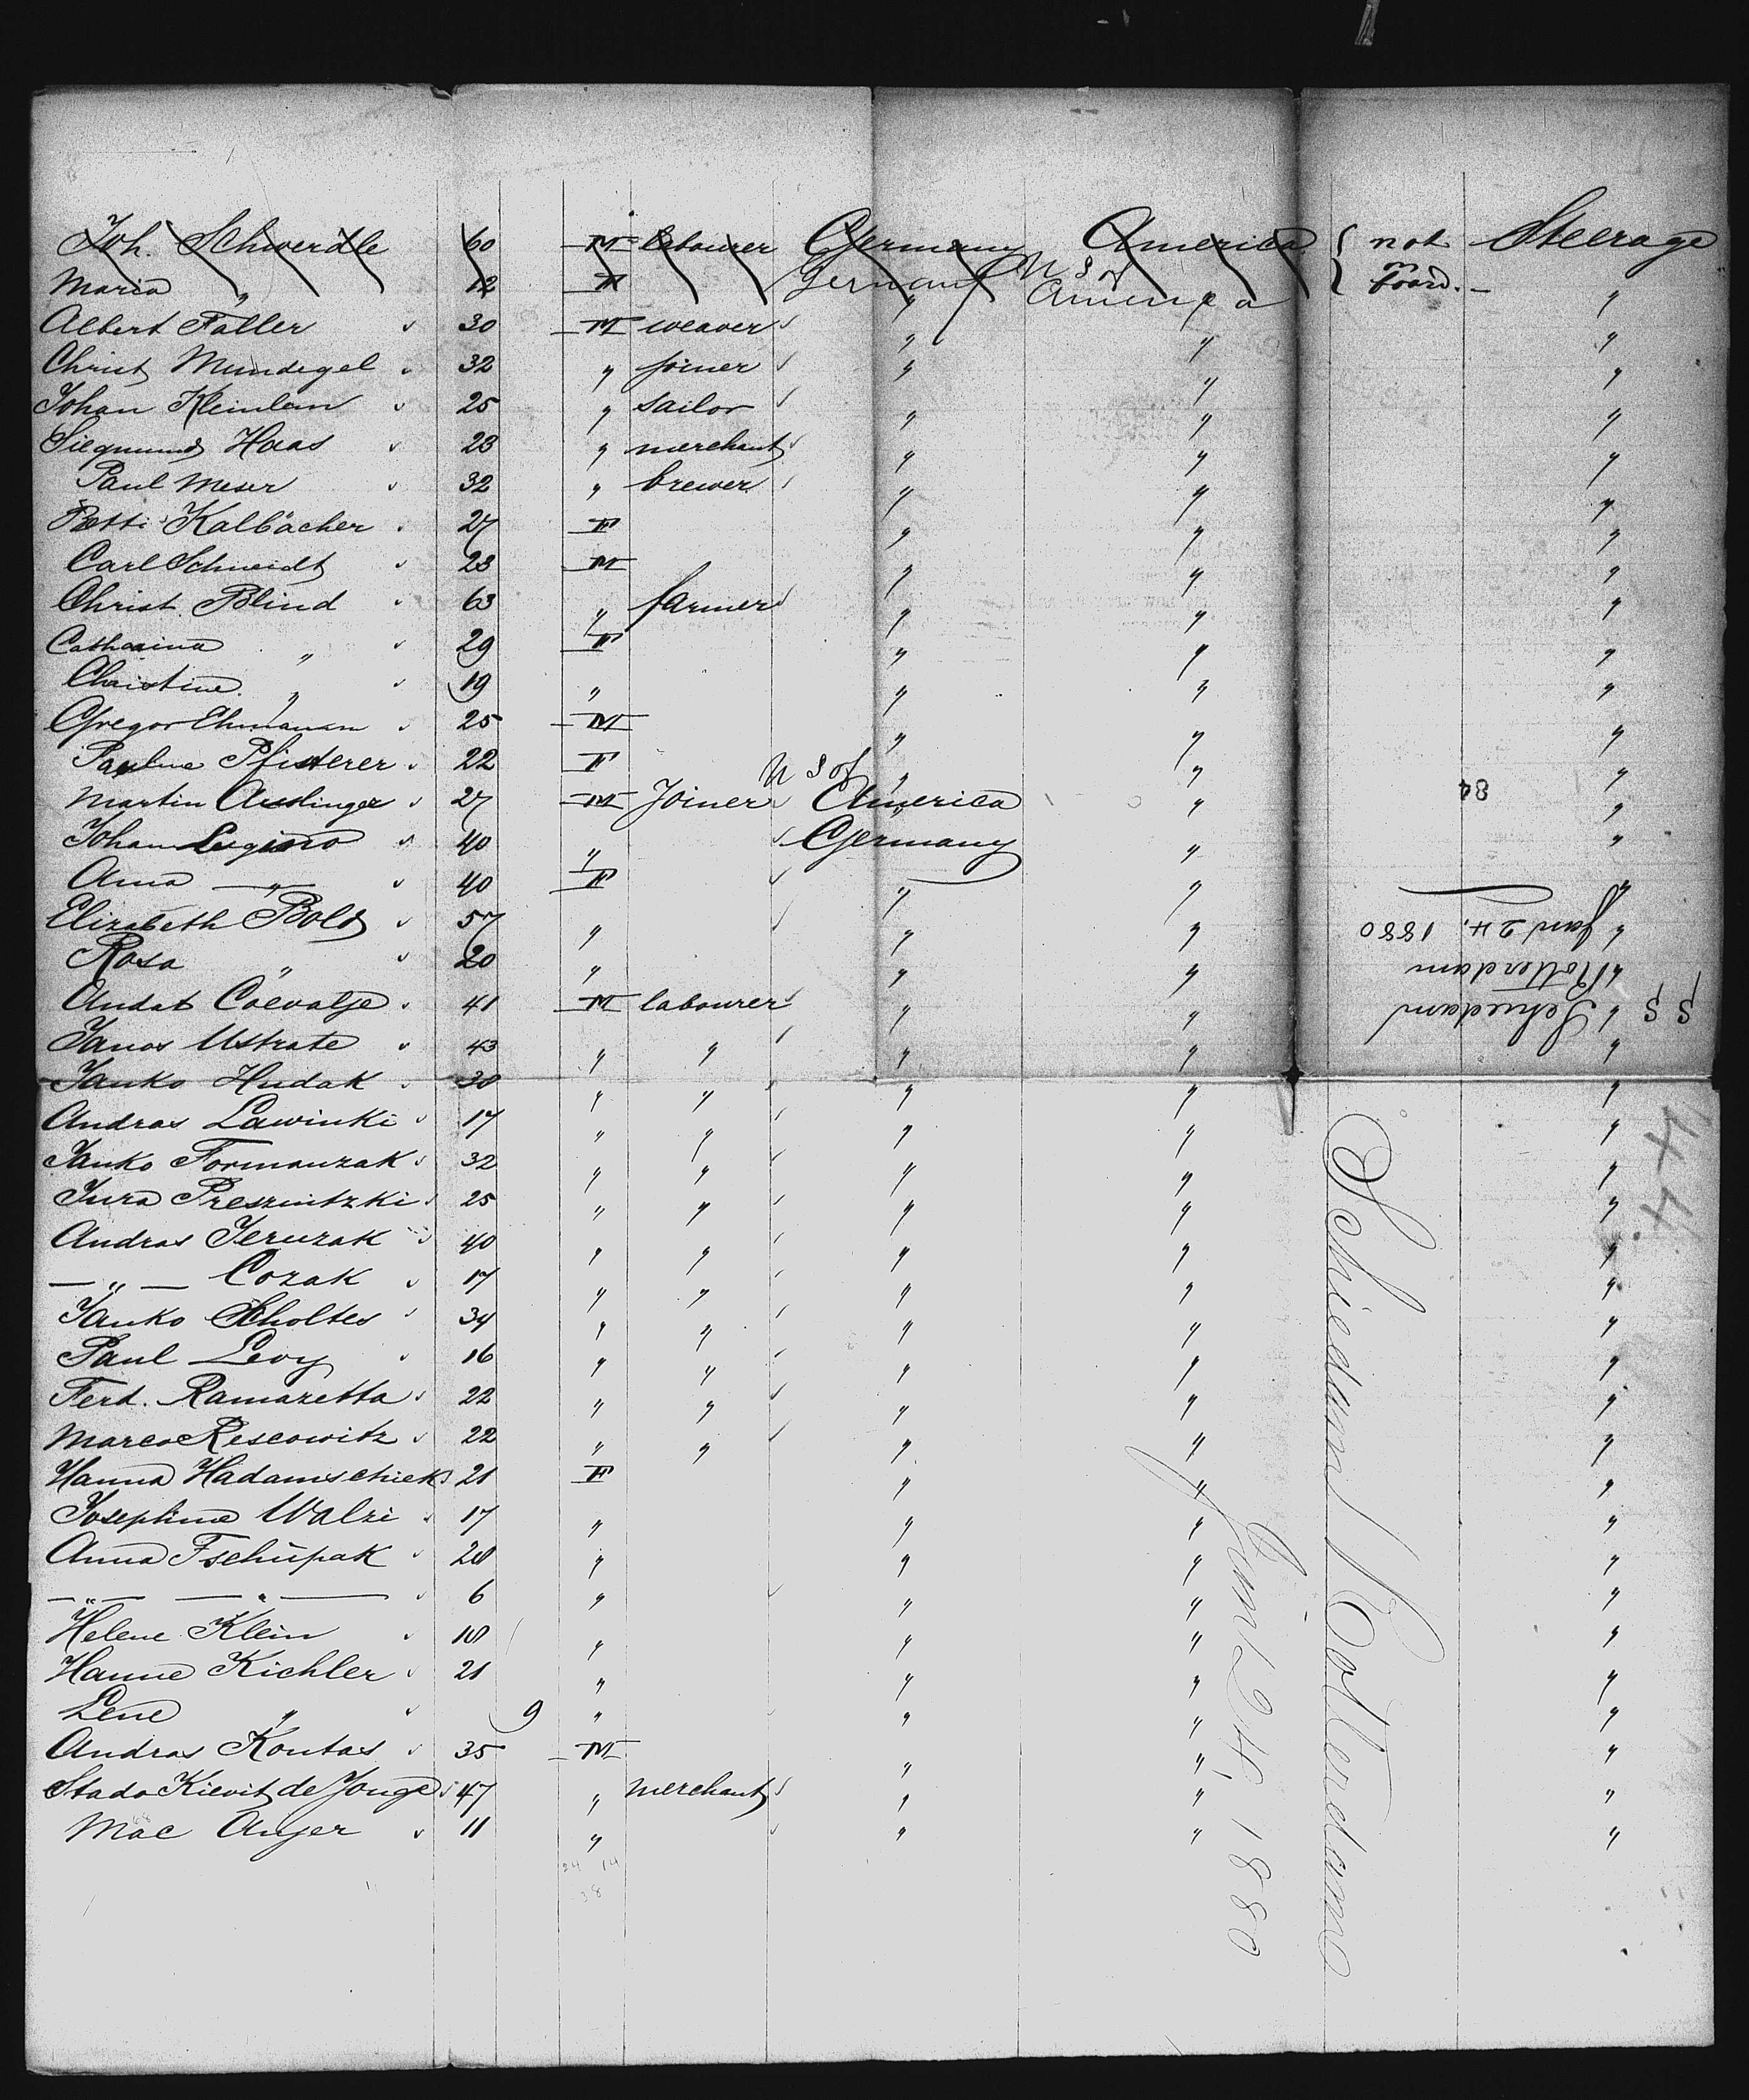 Joh. Schwerdle 60 M labourer Germany America { not Steerage
Maria " 12 F Germany U S of America board. — "
Albert Faller 30 M weaver " " "
Christ Mundigel 32 " joiner " " "
Johan Kleinlein 25 " sailor " " "
Siegmund Haas 23 " merchant " " "
Paul Meser 32 " brewer " " "
Betti Kalbächer 27 F " " "
Carl Schmidt 23 M " " "
Christ. Blind 63 " farmer " " "
Catharina " 29 F " " "
Christine " 19 " " " "
Gregor Ehmann 25 M " " "
Pauline Pfisterer 22 F " " "
Martin Auslinger 27 M Joiner U S of America " "
Johan 40 " Germany " "
Anna — " — 40 F " " "
Elizabeth Bold 57 " " " "
Rosa " 20 " " " "
Andat Coevatje 41 M labourer " " "
Janos Ustrate 43 " " " " "
Janko Hudak 38 " " " " "
Andras Lawinki 17 " " " " "
Janko Formanzak 32 " " " " "
Jura Preszintzki 25 " " " " "
Andras Jeruzak 40 " " " " "
— " — Cozak 17 " " " " "
Janko Scholtes 34 " " " " "
Paul Levy 16 " " " " "
Ferd. Ramazetta 22 " " " " "
Marco Rescowitz 22 " " " " "
Hanna Hadamschiek 21 F " " "
Josephine Walzi 17 " " " "
Anna Tschupak 28 " " " "
— " — — " — 6 " " " "
Helene Klein 18 " " " "
Hanne Kichler 21 " " " "
Lene " 9 " " " "
Andras Kontas 35 M " " "
Stado Kievit de Jonge 47 " merchant " " "
Mac Anjer 11 " " " "
24 14
38
84
S S Schiedam
Rotterdam
Jan 24. 1880
44
Schiedam / Rotterdam
Jan 24, 1880